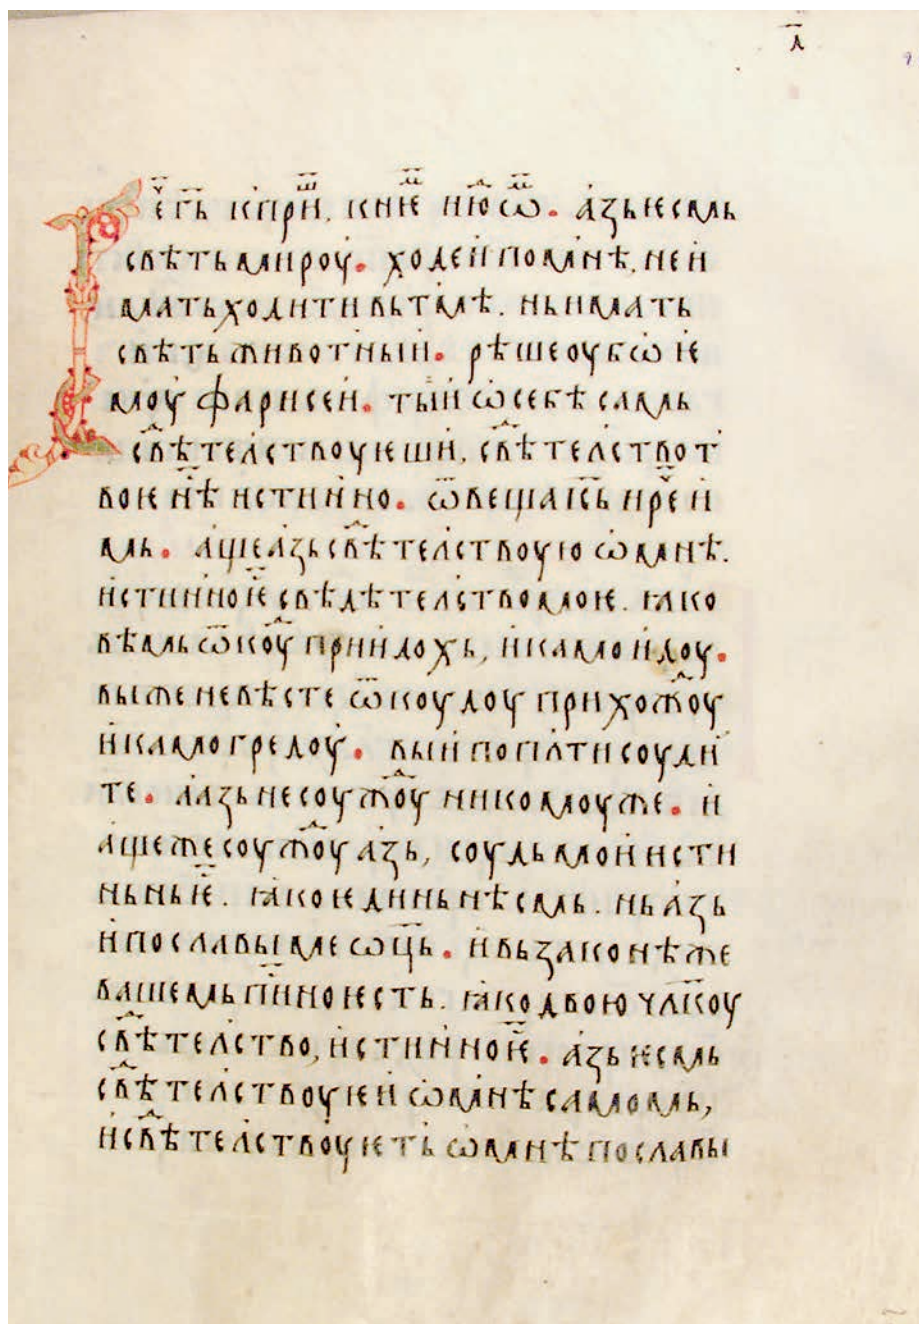 л҃
Рече г҃ь къ пришⷣ. к ние июⷣѡⷨ. а́зь ѥсмь
свѣть мироу. ходеи по мнѣ, не и
мать ходити вь тмѣ. нь имать
свѣть животныи. рѣше оубѡ ѥ
моу фарисеи. ты и ѡ себѣ самь
свⷣѣтелствоуѥши, свⷣѣтелство т
воѥ нѣ҃ истинно. ѿвеща і҃сь и рече и
мь. аще азь свⷣѣтелствоую ѡ мнѣ.
истинно ѥ҃ свѣдѣтелство моѥ. ꙗко
вѣмь ѿкоуⷣ приидохь, и камо идоу.
вы же не вѣсте ѿкоудоу прихожⷣоу
и камо гредоу. вы и по пльти соуди
те. а азь не соужⷣоу никомоу же. и
аще же соужⷣоу азь, соудь мои исти
ньнь ѥ҃. ꙗко ѥдинь нѣсмь. нь азь
и пославы ме ѡц҃ь. и вь законѣ же
вашемь п҃ино ѥсть. ꙗко двою чл҃коу
свⷣѣтелство, истинно ѥ҃. азь ѥсмь
свⷣѣтелствоуѥи ѡ мнѣ самомь,
и свⷣѣтелствоуѥть ѡ мнѣ пославы